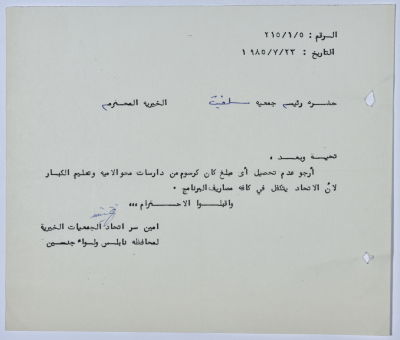 الرقم : ٢١٥/١/٥
التاريخ : ١٩٨٥/٧/٢٣
حضرة رئيس جمعية سلفيت الخيرية المحترم
تحية وبعد ،
أرجو عدم تحصيل أى مبلغ كان كرسوم من دارسات محو الامية وتعليم الكبار
لأن الاتحاد يتكفل في كافة مصاريف البرنامج .
واقبلوا الاحترام،،،
امين سر اتحاد الجمعيات الخيرية
لمحافظة نابلس ولواء جنين